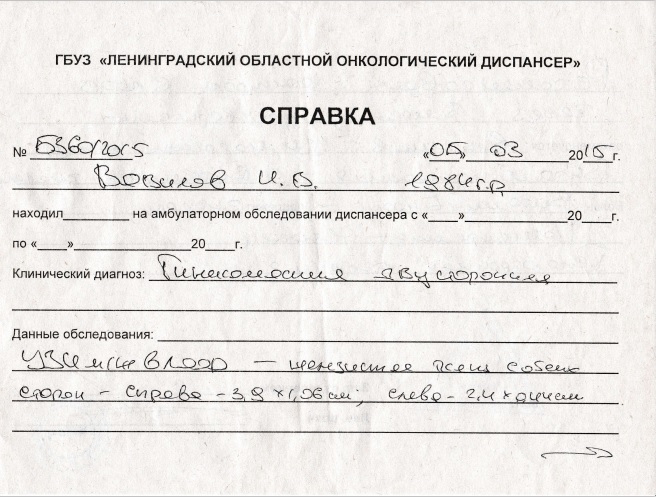 ГБУЗ «ЛЕНИНГРАДСКИЙ ОБЛАСТНОЙ ОНКОЛОГИЧЕСКИЙ ДИСПАНСЕР»
СПРАВКА
№ 5360/2015 «05» 03 2015 г.
Вавилов И. В. 1984 г.р
находил________ на амбулаторном обследовании диспансера с «____»____________20____г.
по «____»______________20____г.
Клинический диагноз: Гинекомастия двусторонняя
Данные обследования:
УЗИ в ЛООД – железистая ткань с обеих
сторон - справа - 3,9 х 1,06 см; слева - 2,4 х см